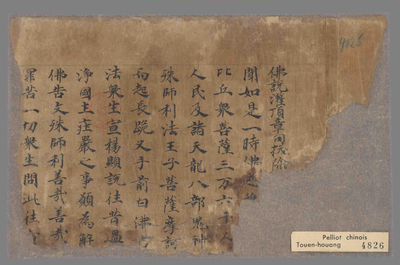 佛說灌頂章句拔除
聞如是一時佛在
比丘衆菩薩三万六千
人民及諸天龍八部鬼神
殊師利法王子菩薩摩訶
而起長跪叉手前白佛言
法衆生宣揚顯說往昔過
淨國土莊嚴之事願為解
佛告文殊師利善哉善哉
罪苦一切衆生問此往
Pelliot chinois
Touen-houang 4826